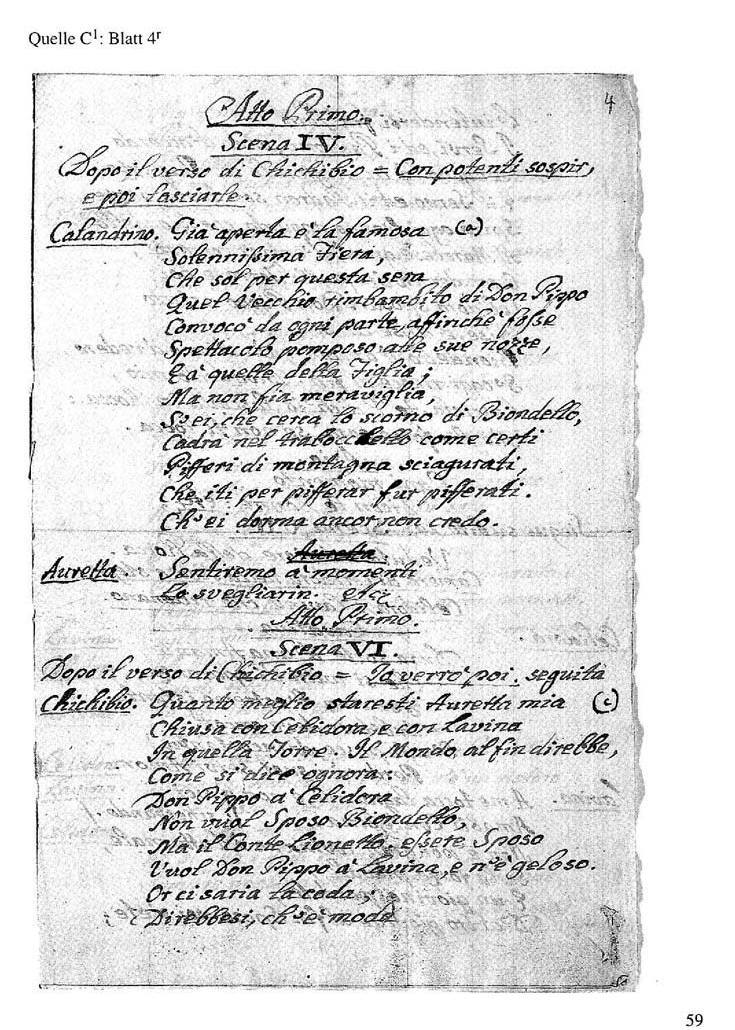 Quelle C¹: Blatt 4ʳ
4
Atto Primo.
Scena IV.
Dopo il verso di Chichibio = Con potenti sospir,
e poi lasciarle
Calandrino. Già aperta è la famosa (a)
Solennissima Fiera
Che sol per questa sera
Quel Vecchio rimbambito di Don Pippo
Convocò da ogni parte, affinchè fosse
Spettacolo pomposo alle sue nozze,
E à quelle della Figlia;
Ma non fia meraviglia,
S'ei, che cerca lo scorno di Biondello,
Cadrà nel trabocchello come certi
Pifferi di montagna sciagurati,
Che iti per pifferar fur pifferati.
Ch'ei dorma ancor non credo.
Auretta
Auretta Sentiremo à momenti
Lo svegliarin. etc:
Atto Primo.
Scena VI.
Dopo il verso di Chichibio = Io verrò poi. seguita
Chichibio. Quanto meglio staresti Auretta mia (c)
Chiusa con Celidora, e con Lavina
In quella Torre. Il Mondo al fin direbbe,
Come si dice ognora:
Don Pippo à Celidora
Non vuol Sposo Biondello,
Ma il Conte Lionetto. essere Sposo
Vuol Don Pippo à Lavina, e n'è geloso.
Or ci saria la coda;
Direbbesi, ch'è moda
59